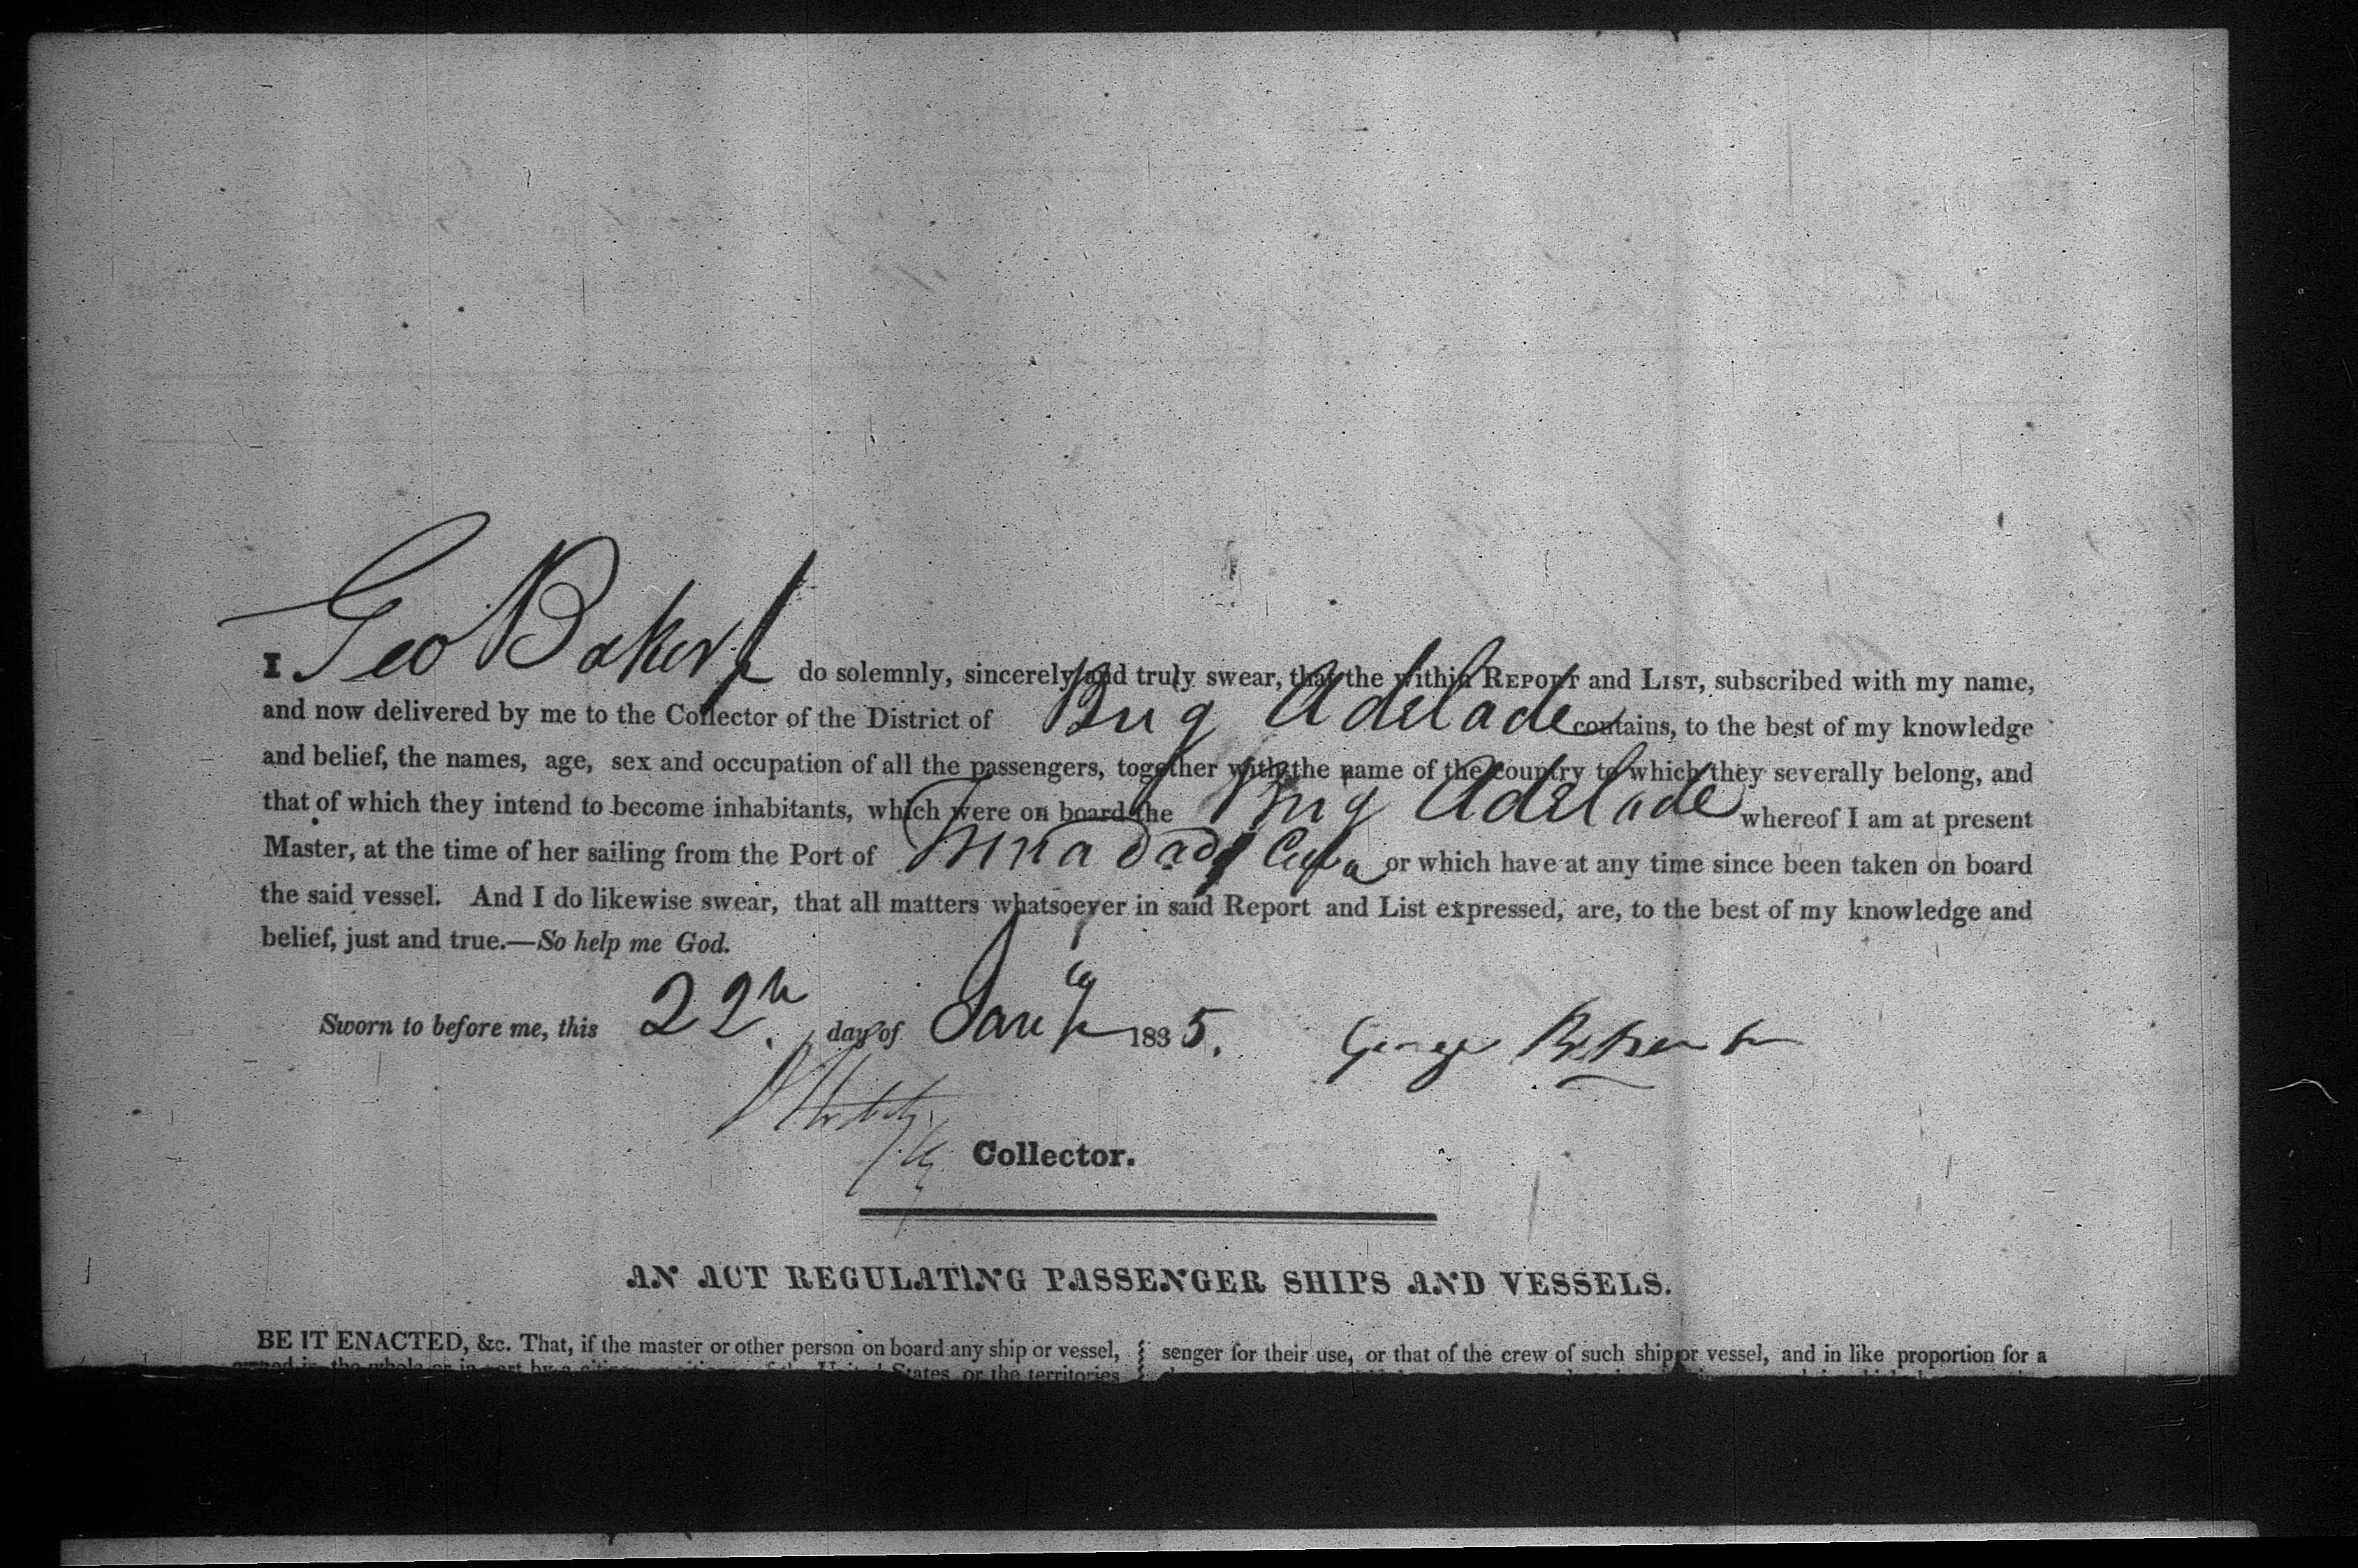 I Geo Baker Jr do solemnly, sincerely and truly swear, that the within REPORT and LIST, subscribed with my name,
and now delivered by me to the Collector of the District of Brig Adelade contains, to the best of my knowledge
and belief, the names, age, sex and occupation of all the passengers, together with the name of the country to which they severally belong, and
that of which they intend to become inhabitants, which were on board the Brig Adelade whereof I am at present
Master, at the time of her sailing from the Port of Trinadad Cuba or which have at any time since been taken on board
the said vessel. And I do likewise swear, that all matters whatsoever in said Report and List expressed, are, to the best of my knowledge and
belief, just and true.—So help me God.
Sworn to before me, this 22h day of Jany 1835. George
Collector.
AN ACT REGULATING PASSENGER SHIPS AND VESSELS.
BE IT ENACTED, &c. That, if the master or other person on board any ship or vessel,
States, or the territories
senger for their use, or that of the crew of such ship or vessel, and in like proportion for a